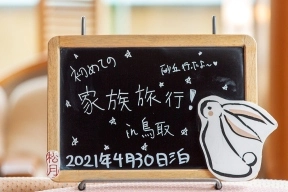 初めての
砂丘行たよ〜♡
家族旅行!
in 鳥取
2021年4月30日泊
松月